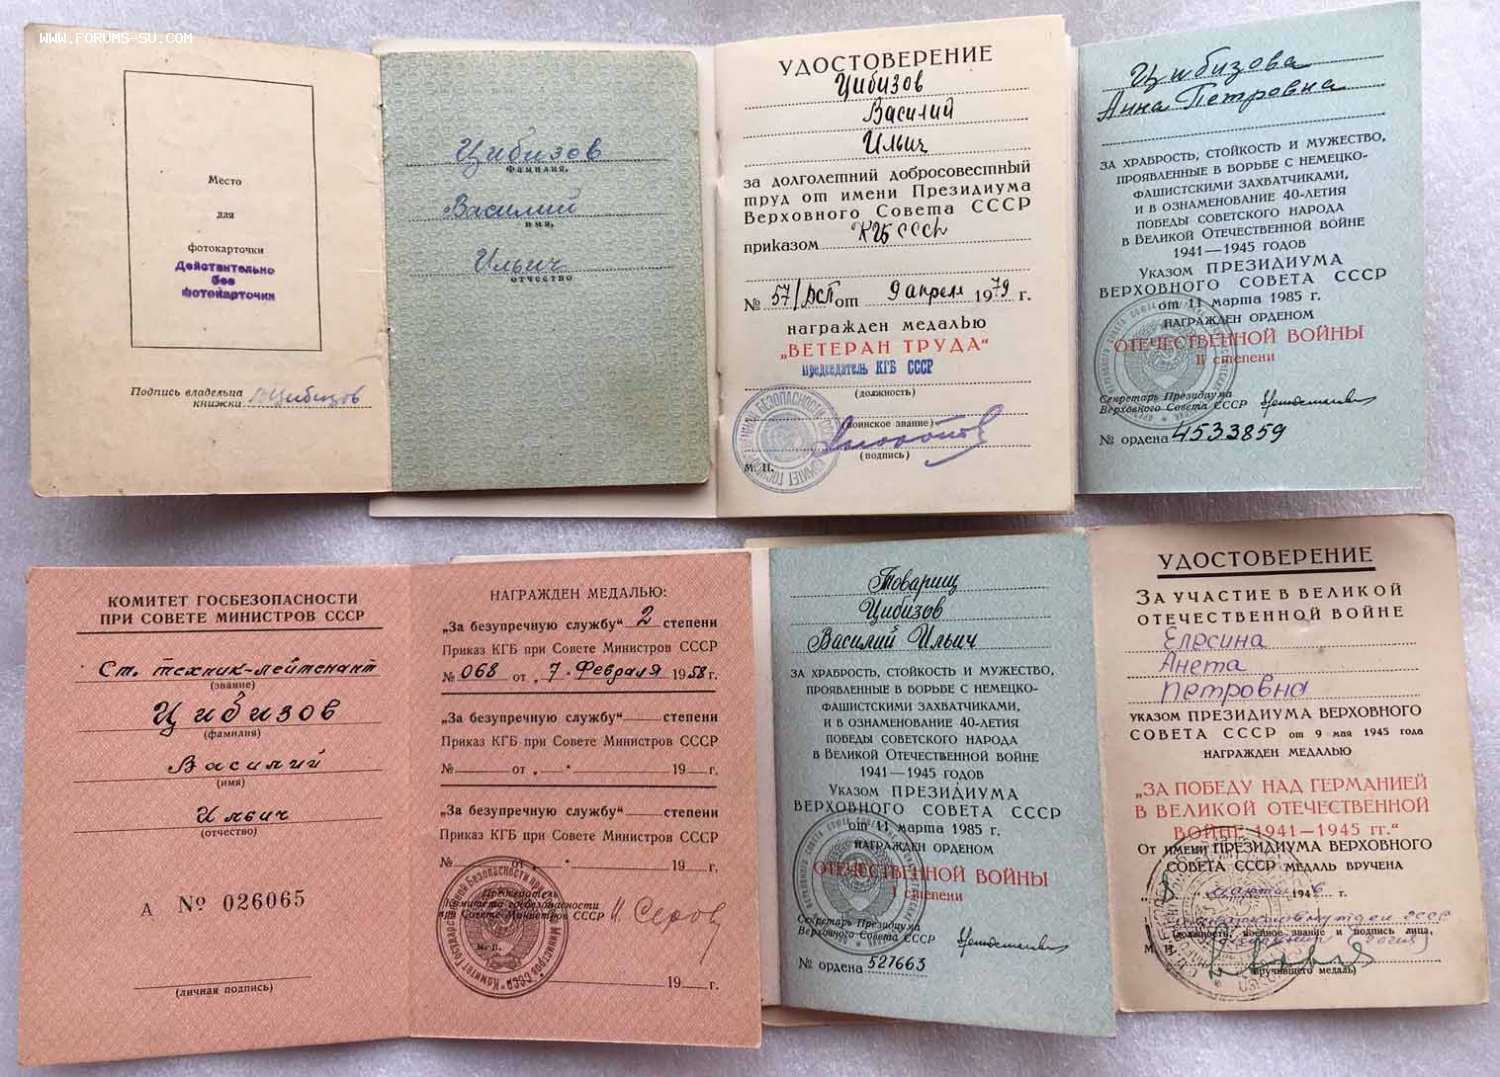 WWW.FORUMS-SU.COM
Место
для
фотокарточки
Действительно
без
фотокарточки
Подпись владельца
книжки Цибизов
Цибизов
Фамилия,
Василий
имя,
Ильич
отчество
УДОСТОВЕРЕНИЕ
Цибизов
Василий
Ильич
за долголетний добросовестный
труд от имени Президиума
Верховного Совета СССР
приказом КГБ СССР
№ 57/ДСП от 9 апреля 1979 г.
награжден медалью
„ВЕТЕРАН ТРУДА“
Председатель КГБ СССР
(должность)
(воинское звание)
(подпись)
М. П.
Цибизова
Анна Петровна
ЗА ХРАБРОСТЬ, СТОЙКОСТЬ И МУЖЕСТВО,
ПРОЯВЛЕННЫЕ В БОРЬБЕ С НЕМЕЦКО-
ФАШИСТСКИМИ ЗАХВАТЧИКАМИ,
И В ОЗНАМЕНОВАНИЕ 40-ЛЕТИЯ
ПОБЕДЫ СОВЕТСКОГО НАРОДА
В ВЕЛИКОЙ ОТЕЧЕСТВЕННОЙ ВОЙНЕ
1941—1945 ГОДОВ
УКАЗОМ ПРЕЗИДИУМА
ВЕРХОВНОГО СОВЕТА СССР
от 11 марта 1985 г.
НАГРАЖДЕН ОРДЕНОМ
ОТЕЧЕСТВЕННОЙ ВОЙНЫ
II степени
Секретарь Президиума
Верховного Совета СССР
№ ордена 4533859
КОМИТЕТ ГОСБЕЗОПАСНОСТИ
ПРИ СОВЕТЕ МИНИСТРОВ СССР
Ст. техник-лейтенант
(звание)
Цибизов
(фамилия)
Василий
(имя)
Ильич
(отчество)
А № 026065
(личная подпись)
НАГРАЖДЕН МЕДАЛЬЮ:
„За безупречную службу“ 2 степени
Приказ КГБ при Совете Министров СССР
№ 068 от „7“ февраля 1958 г.
„За безупречную службу“ степени
Приказ КГБ при Совете Министров СССР
№ от „ “ 19 г.
„За безупречную службу“ степени
Приказ КГБ при Совете Министров СССР
№ от „ “ 19 г.
Председатель
Комитета госбезопасности
при Совете Министров СССР И. Серов
М. П.
19 г.
Товарищ
Цибизов
Василий Ильич
ЗА ХРАБРОСТЬ, СТОЙКОСТЬ И МУЖЕСТВО,
ПРОЯВЛЕННЫЕ В БОРЬБЕ С НЕМЕЦКО-
ФАШИСТСКИМИ ЗАХВАТЧИКАМИ,
И В ОЗНАМЕНОВАНИЕ 40-ЛЕТИЯ
ПОБЕДЫ СОВЕТСКОГО НАРОДА
В ВЕЛИКОЙ ОТЕЧЕСТВЕННОЙ ВОЙНЕ
1941—1945 ГОДОВ
УКАЗОМ ПРЕЗИДИУМА
ВЕРХОВНОГО СОВЕТА СССР
от 11 марта 1985 г.
НАГРАЖДЕН ОРДЕНОМ
ОТЕЧЕСТВЕННОЙ ВОЙНЫ
I степени
Секретарь Президиума
Верховного Совета СССР
№ ордена 527663
УДОСТОВЕРЕНИЕ
ЗА УЧАСТИЕ В ВЕЛИКОЙ
ОТЕЧЕСТВЕННОЙ ВОЙНЕ
Елесина
Анета
Петровна
УКАЗОМ ПРЕЗИДИУМА ВЕРХОВНОГО
СОВЕТА СССР от 9 мая 1945 года
НАГРАЖДЕН МЕДАЛЬЮ
„ЗА ПОБЕДУ НАД ГЕРМАНИЕЙ
В ВЕЛИКОЙ ОТЕЧЕСТВЕННОЙ
ВОЙНЕ 1941—1945 гг.“
От имени ПРЕЗИДИУМА ВЕРХОВНОГО
СОВЕТА СССР МЕДАЛЬ ВРУЧЕНА
марта 1946 г.
СССР
(должность, военное звание и подпись лица,
М. П.
вручившего медаль)